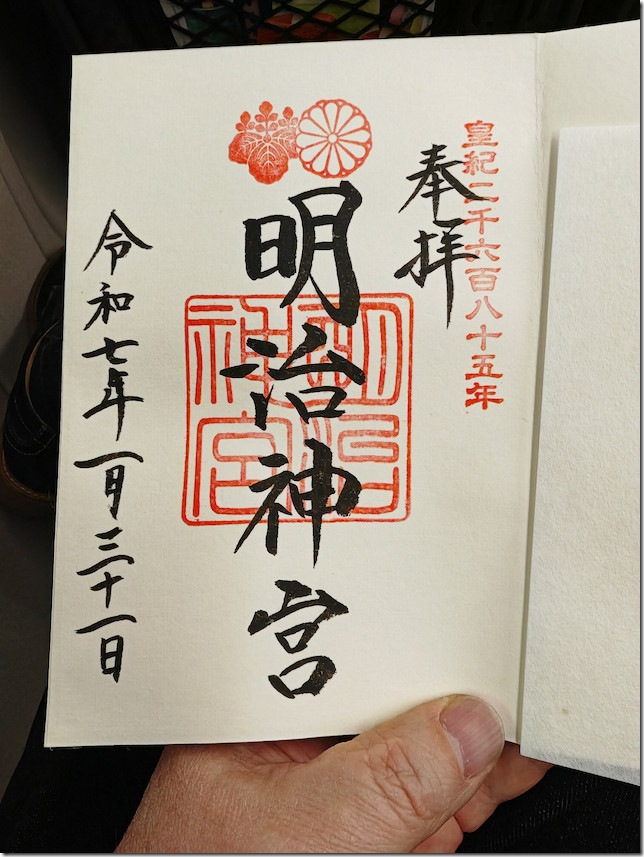 皇紀二千六百八十五年
奉拝
明治神宮
明治神宮
令和七年一月三十一日